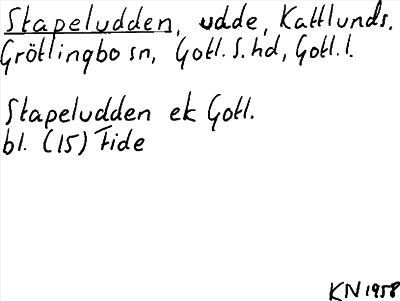 Stapeludden, udde, Kattlunds.
Grötlingbo sn, Gotl. S. hd, Gotl. l.
Stapeludden ek Gotl.
bl. (15) Fide
KN 1958